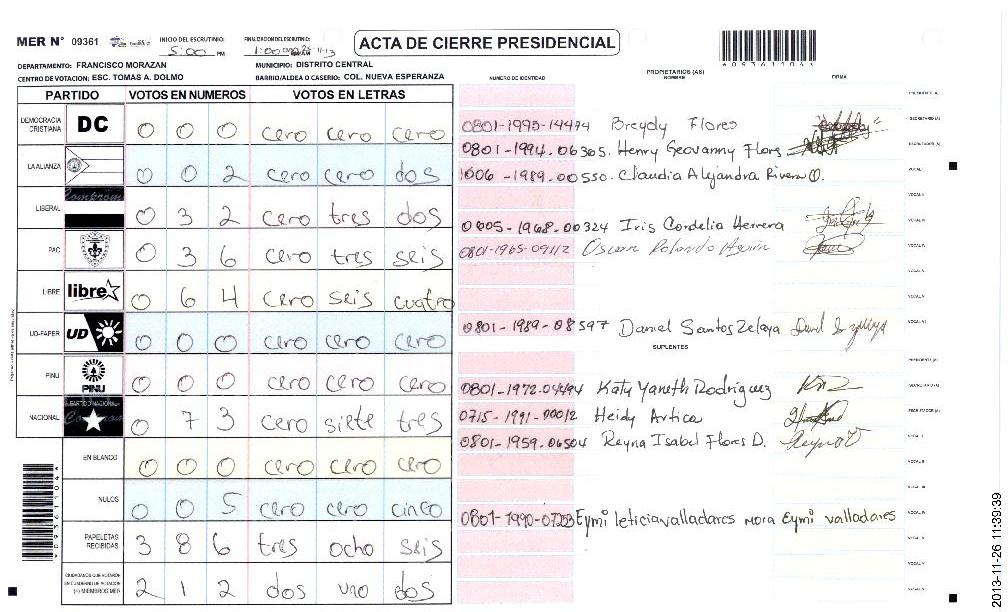 MER N° 09361
INICIO DEL ESCRUTINIO: 5:00 PM
FINALIZACION DEL ESCRUTINIO: 1:00
ACTA DE CIERRE PRESIDENCIAL
DEPARTAMENTO: FRANCISCO MORAZAN MUNICIPIO: DISTRITO CENTRAL
CENTRO DE VOTACION: ESC. TOMAS A. DOLMO BARRIO/ALDEA O CASERIO: COL. NUEVA ESPERANZA
PARTIDO VOTOS EN NUMEROS VOTOS EN LETRAS
DEMOCRACIA CRISTIANA DC 0 0 0 cero cero cero
LA ALIANZA 0 0 2 cero cero dos
LIBERAL 0 3 2 cero tres dos
PAC 0 3 6 cero tres seis
LIBRE libre 0 6 4 cero seis cuatro
UD-FAPER UD 0 0 0 cero cero cero
PINU PINU 0 0 0 cero cero cero
NACIONAL 0 7 3 cero siete tres
EN BLANCO 0 0 0 cero cero cero
NULOS 0 0 5 cero cero cinco
PAPELETAS RECIBIDAS 3 8 6 tres ocho seis
CIUDADANOS QUE VOTARON EN CUADERNO DE VOTACION (+) MIEMBROS MER 2 1 2 dos uno dos
NUMERO DE IDENTIDAD PROPIETARIOS (AS) NOMBRE FIRMA
PRESIDENTE (A)
0801-1995-14494 Breydy Flores SECRETARIO (A)
0801-1994-06305. Henry Geovanny Flores ESCRUTADOR (A)
1006-1989-00550. Claudia Alejandra Rivera O. VOCAL I
VOCAL II
0605-1968-00324 Iris Cordelia Herrera VOCAL III
0801-1965-09112 Oscar Rolando VOCAL IV
VOCAL V
0801-1989-08597 Daniel Santos Zelaya
SUPLENTES
PRESIDENTE (A)
0801-1972-04494 Katy Yaneth Rodriguez SECRETARIO (A)
0715-1991-00012 Heidy Artica ESCRUTADOR (A)
0801-1959-06504 Reyna Isabel Flores D. VOCAL I
VOCAL II
VOCAL III
Eymi leticia valladares mora Eymi valladares VOCAL IV
VOCAL V
2013-11-26 11:39:39